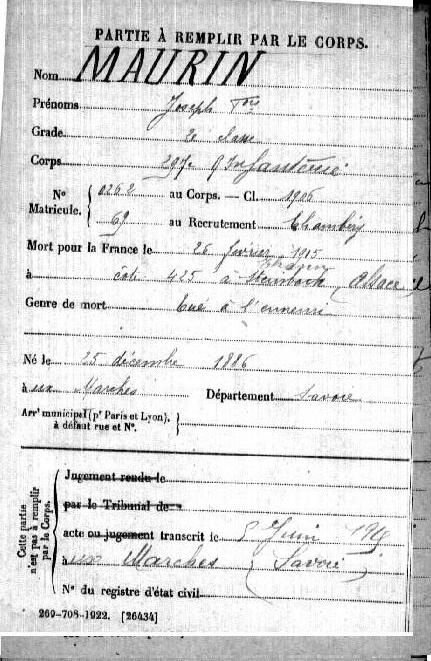 PARTIE À REMPLIR PAR LE CORPS.
Nom MAURIN
Prénoms Joseph
Grade 2e classe
Corps 297e d'Infanterie
N° Matricule. { 0262 au Corps. — Cl. 1906
69 au Recrutement Chambéry
Mort pour la France le 26 février 1915
Thann
à côte 425 à Steinbach (Alsace
Genre de mort Tué à l'ennemi
Né le 25 décembre 1886
à ux Marches Département Savoie
Arrt municipal (pr Paris et Lyon),
à défaut rue et N°.
Cette partie n'est pas à remplir par le Corps.
Jugement rendu le
par le Tribunal de
acte ou jugement transcrit le 5 Juin
à ux Marches (Savoie)
N° du registre d'état civil
269-708-1922. [26434]